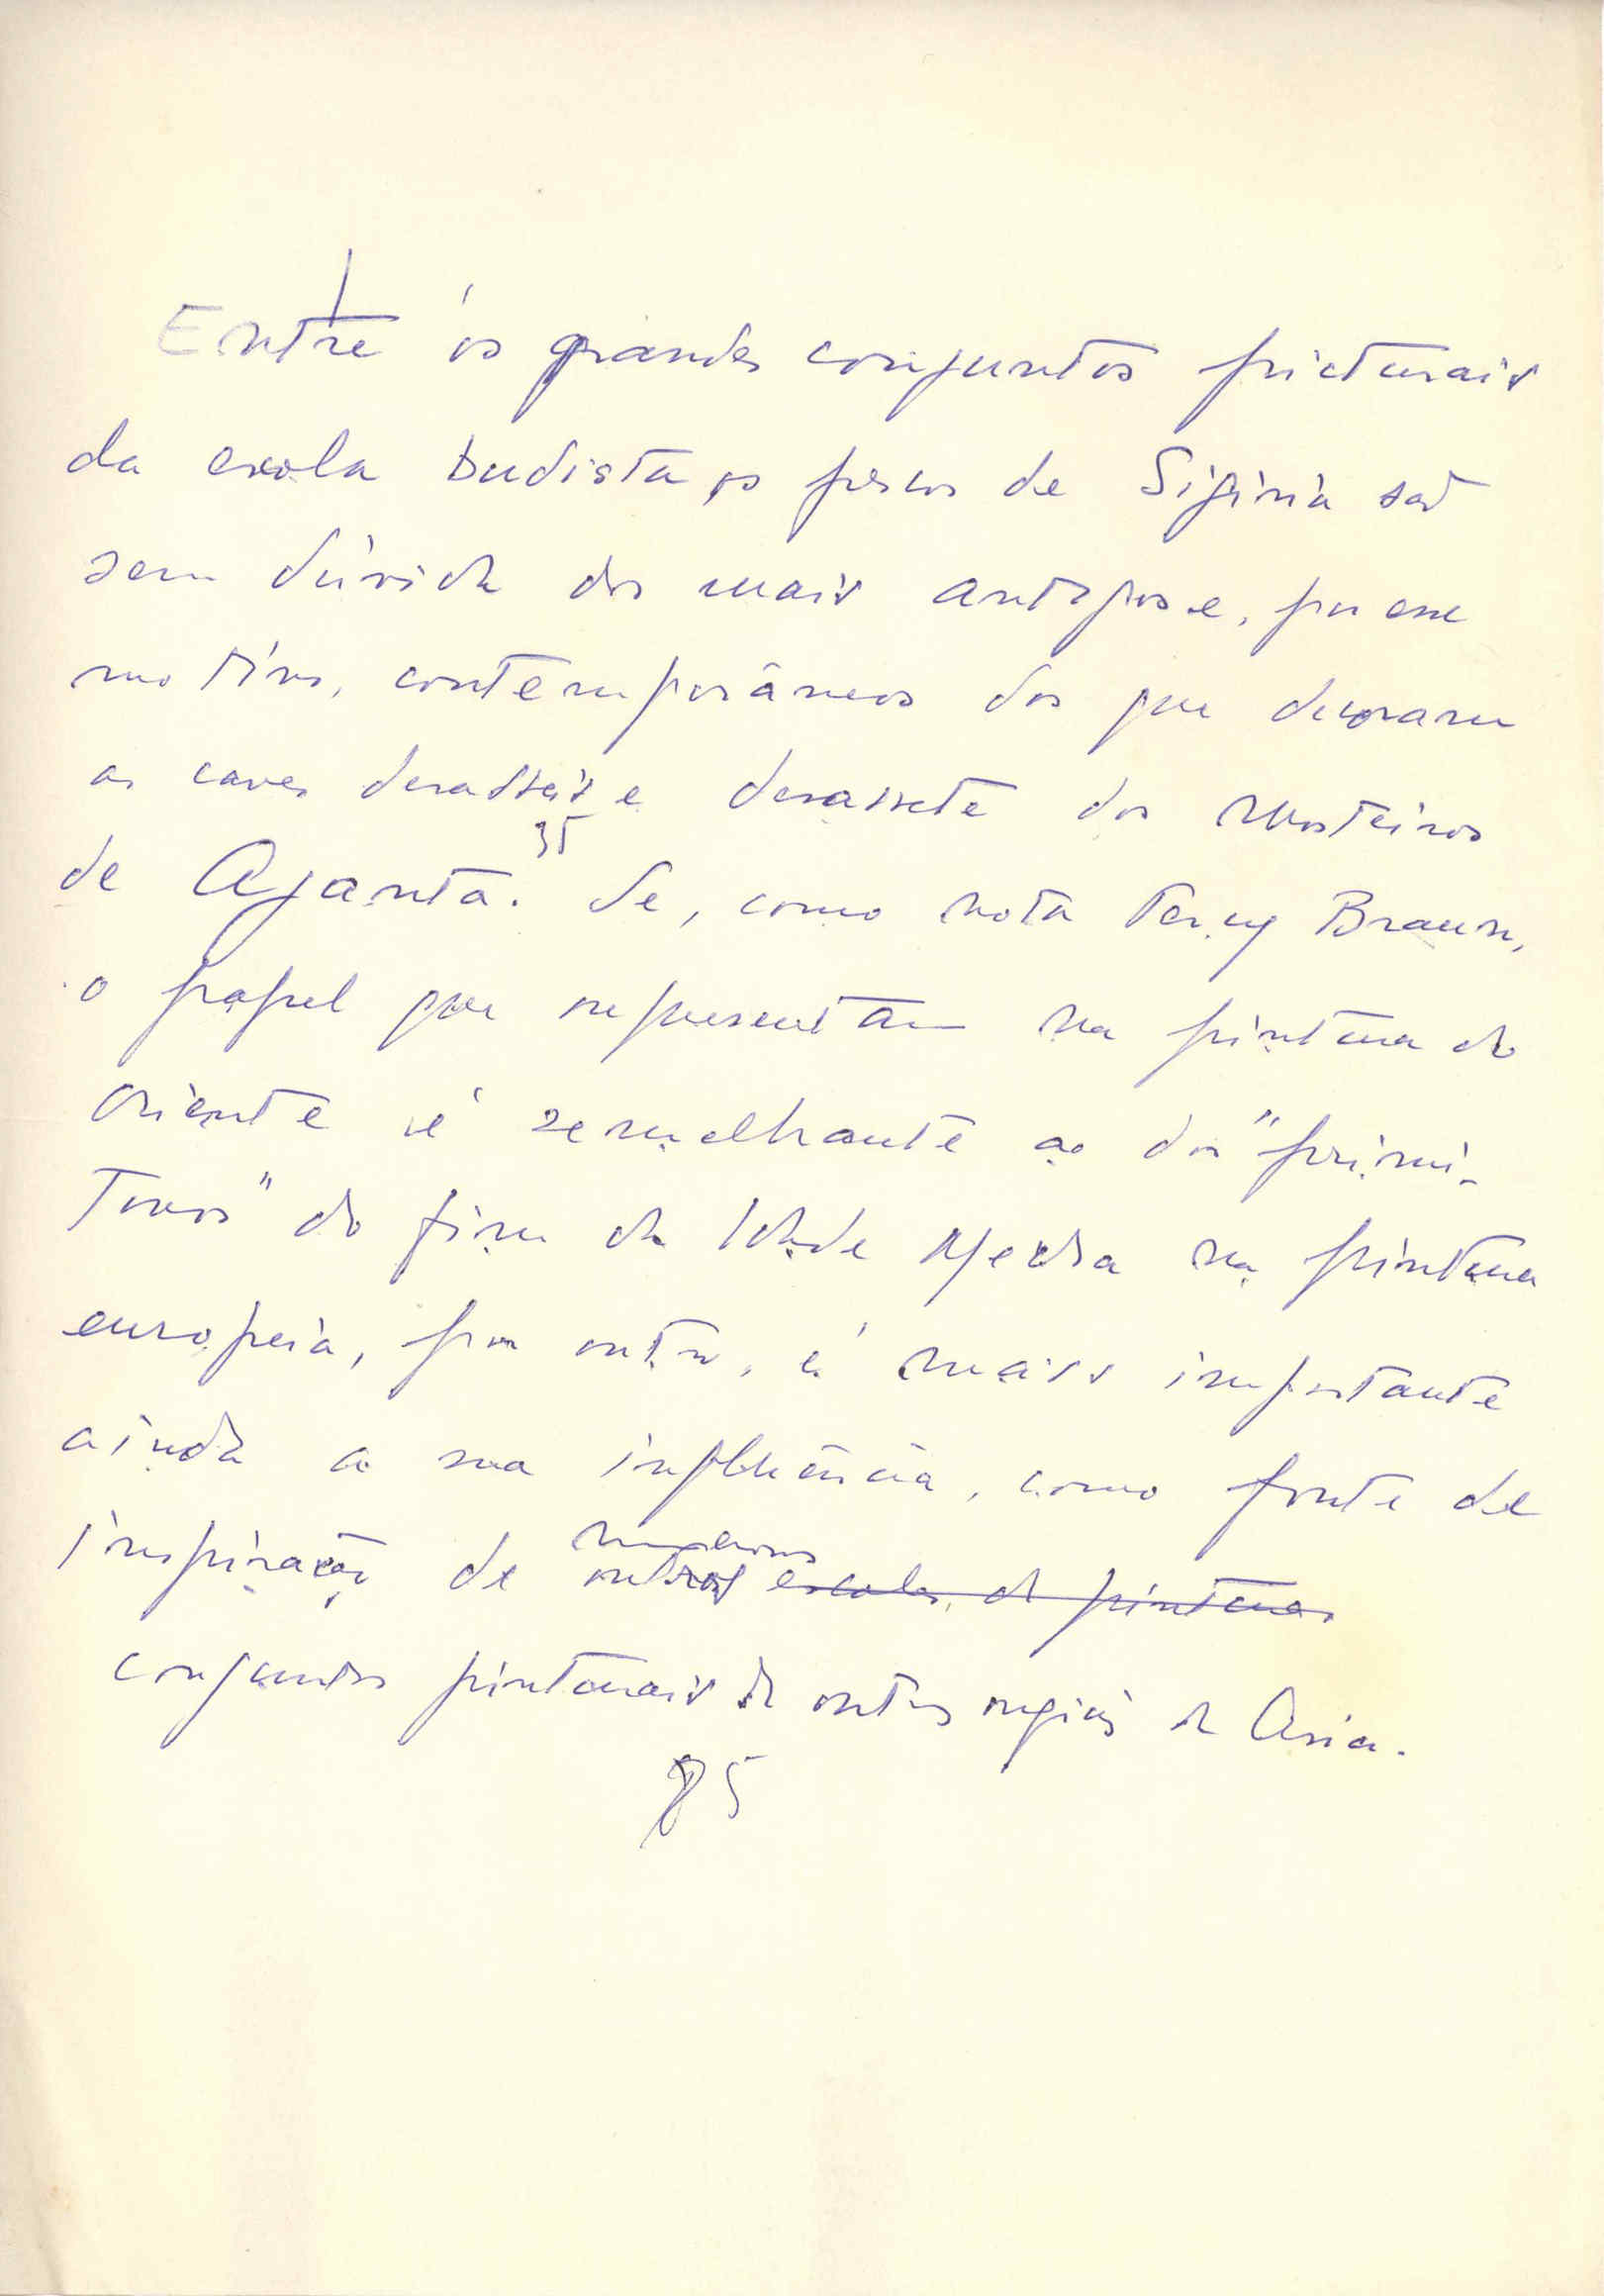 Entre os grandes conjuntos picturais
da escola budista, os frescos de Sigiria são
sem dúvida dos mais antigos e, por esse
motivo, contemporâneos dos que decoram
as caves desasseis e desassete dos mosteiros
de Ajanta.35 Se, como nota Percy Braun,
o papel que representam na pintura do
oriente é semelhante ao dos "primi-
tivos" do fim da Idade Media na pintura
europeia, por outro, é mais importante
ainda a sua influência, como fonte de
numerosos
inspiração de outros escolas de pintura
conjuntos pinturais de outras regiões da Asia.
85